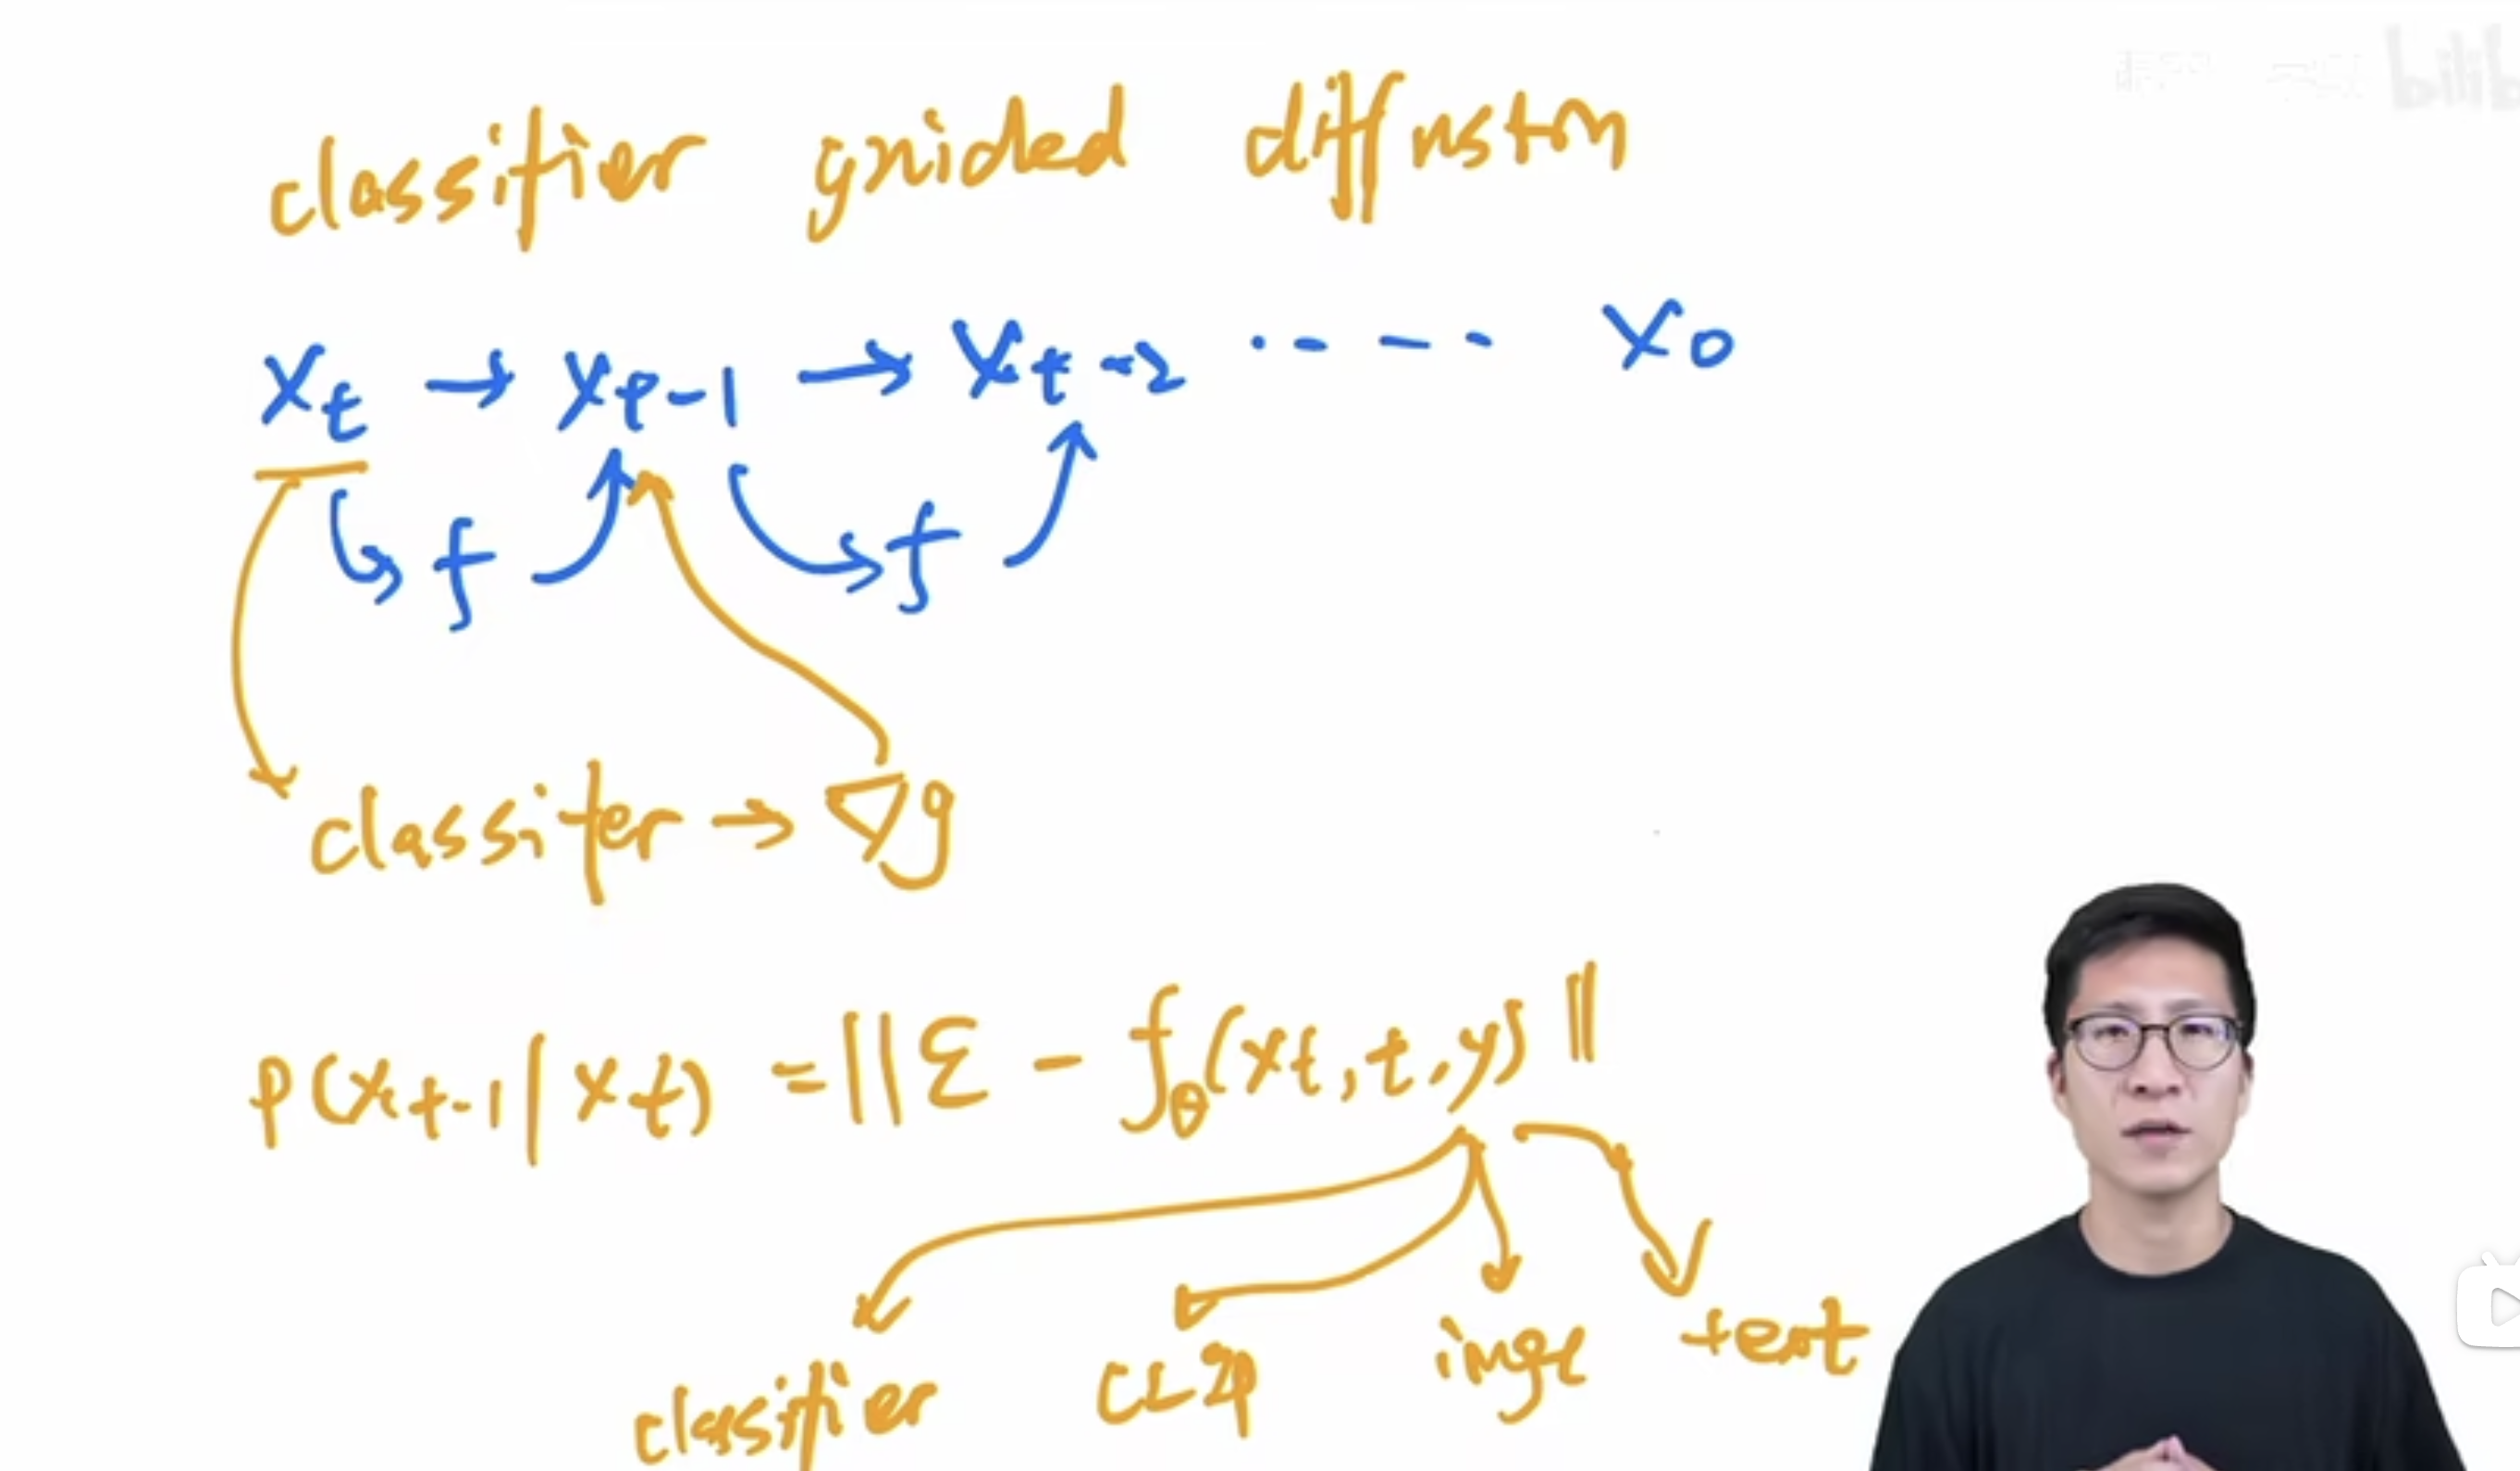 classifier guided diffusion
bilib
Xt → Xt-1 → Xt-2 ..--- X0
f f
classifer → ∇g
p(xt-1|xt) = ||ε - fθ(xt,t,y)||
classifier CLIP imge text